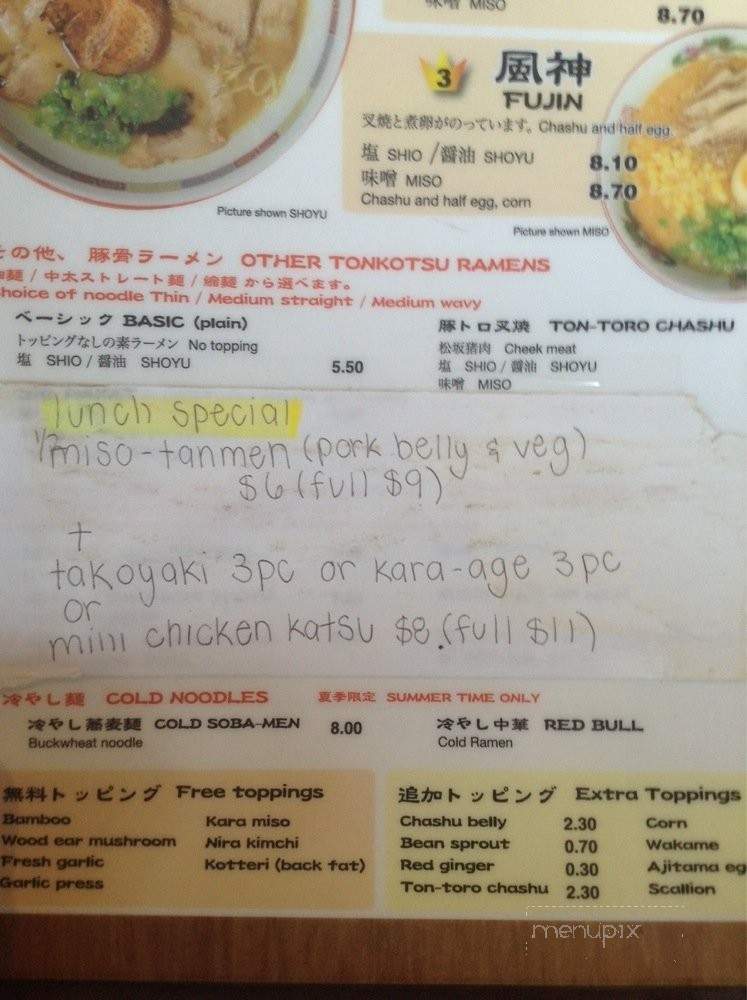 味噌 MISO
8.70
3 風神
FUJIN
叉焼と煮卵がのっています。Chashu and half egg.
塩 SHIO /醤油 SHOYU 8.10
味噌 MISO 8.70
Chashu and half egg, corn
Picture shown SHOYU
Picture shown MISO
その他、豚骨ラーメン OTHER TONKOTSU RAMENS
麺 / 中太ストレート麺 / 縮麺 から選べます。
hoice of noodle Thin / Medium straight / Medium wavy
ベーシック BASIC (plain)
トッピングなしの素ラーメン No topping
塩 SHIO / 醤油 SHOYU 5.50
豚トロ叉焼 TON-TORO CHASHU
松坂猪肉 Cheek meat
塩 SHIO / 醤油 SHOYU
味噌 MISO
lunch special
1/2 miso-tanmen (pork belly & veg)
$6 (full $9)
+
takoyaki 3pc or kara-age 3pc
or
mini chicken katsu $8. (full $11)
冷やし麺 COLD NOODLES 夏季限定 SUMMER TIME ONLY
冷やし蕎麦麺 COLD SOBA-MEN 8.00
Buckwheat noodle
冷やし中華 RED BULL
Cold Ramen
無料トッピング Free toppings
Bamboo
Wood ear mushroom
Fresh garlic
Garlic press
Kara miso
Nira kimchi
Kotteri (back fat)
追加トッピング Extra Toppings
Chashu belly 2.30
Bean sprout 0.70
Red ginger 0.30
Ton-toro chashu 2.30
Corn
Wakame
Ajitama eg
Scallion
menupix